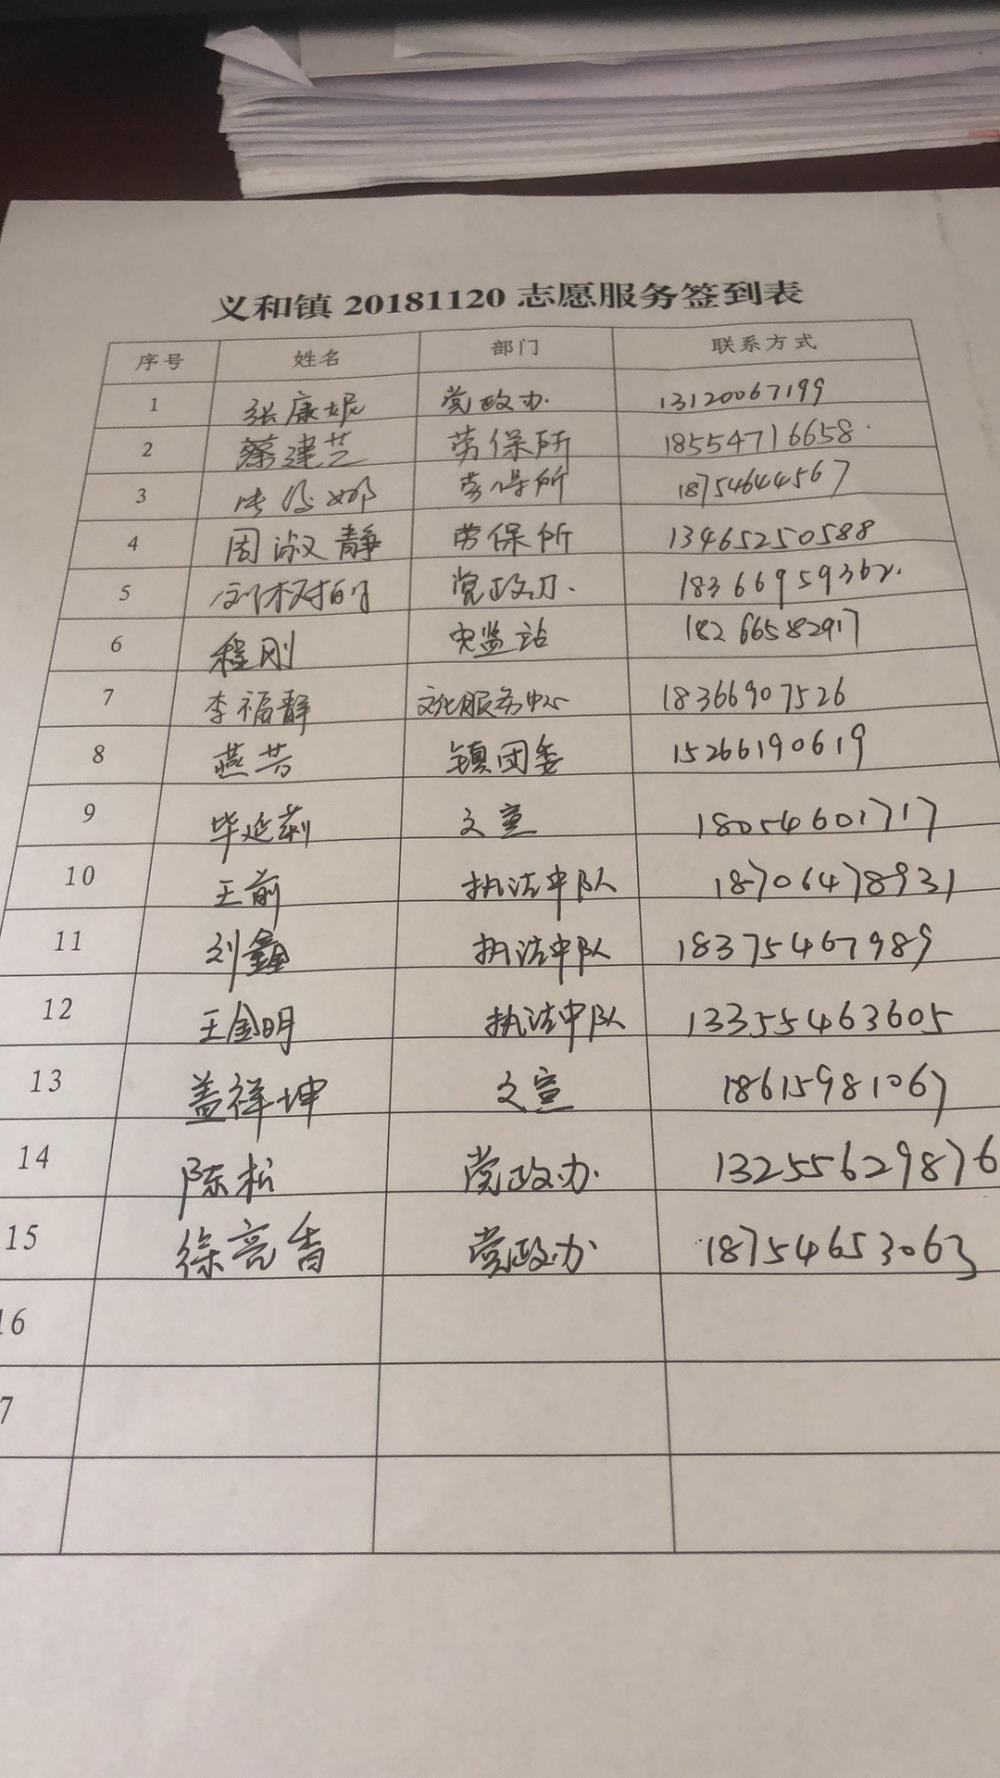 义和镇 20181120 志愿服务签到表
序号 姓名 部门 联系方式
1 张康妮 党政办 13120067199
2 蔡建芝 劳保所 18554716658
3 劳保所 18754644567
4 周淑静 劳保所 13465250588
5 党政办 18366959362
6 程刚 安监站 18266582917
7 李福静 文化服务中心 18366907526
8 燕芳 镇团委 15266190619
9 毕延莉 文宣 18054601717
10 王前 执法中队 18706478931
11 刘鑫 执法中队 18375467989
12 王金明 执法中队 13355463605
13 盖祥坤 文宣 18615981067
14 陈松 党政办 13255629876
15 徐亮香 党政办 18754653063
16
7